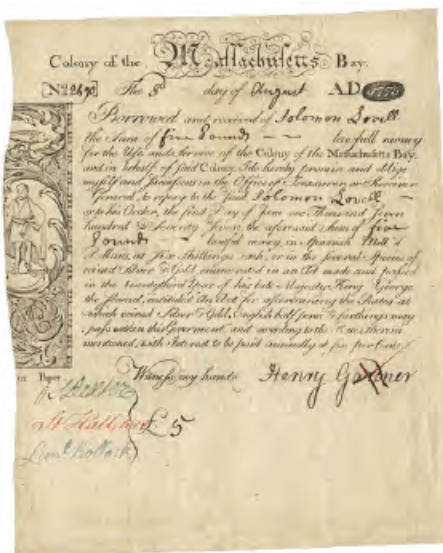 Colony of the Massachusetts Bay.
The 8th day of August AD 1775
Borrowed and received of Solomon Lovell
the Sum of five Pounds lawful money
for the Use and Service of the Colony of the Massachusetts Bay,
and in behalf of said Colony, I do hereby promise and oblige
myself and Successors in the Office of Treasurer or Receiver
General, to repay to the said Solomon Lovell
or to his Order, the first Day of June one Thousand Seven
hundred & Seventy Seven, the aforesaid Sum of five
Pounds lawful money, in Spanish Mill'd
Dollars, at Six Shillings each, or in the several Species of
coined Silver & Gold enumerated in an Act made and passed
in the twenty third Year of his late Majesty King George
the second, entituled An Act for ascertaining the Rates at
which coined Silver & Gold, English half pence & farthings may
pass within this Goverment, and according to the Rates therein
mentioned, with Interest to be paid annually at six per Cent
Witness my hand Henry Gardner
£5